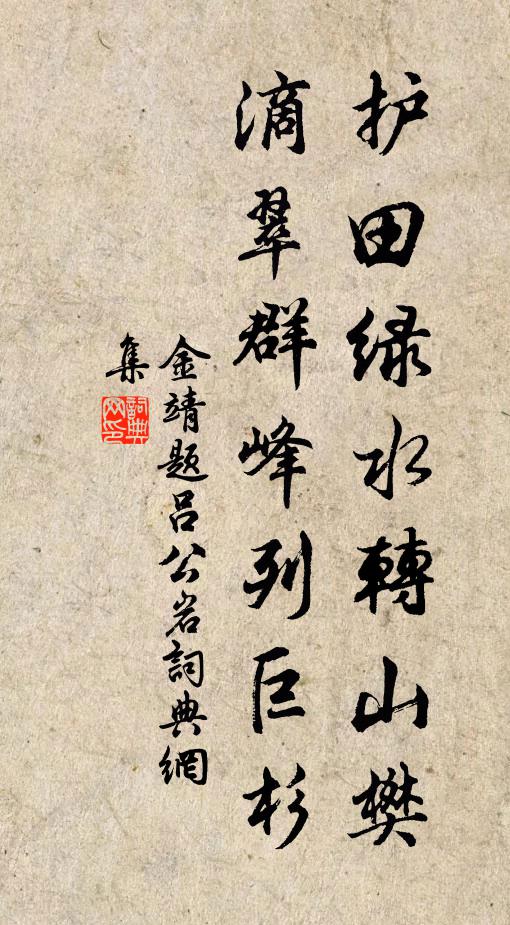 护田绿水转山樊
滴翠群峰列巨杉
金靖题吕公岩詞典網
集
詞典網印